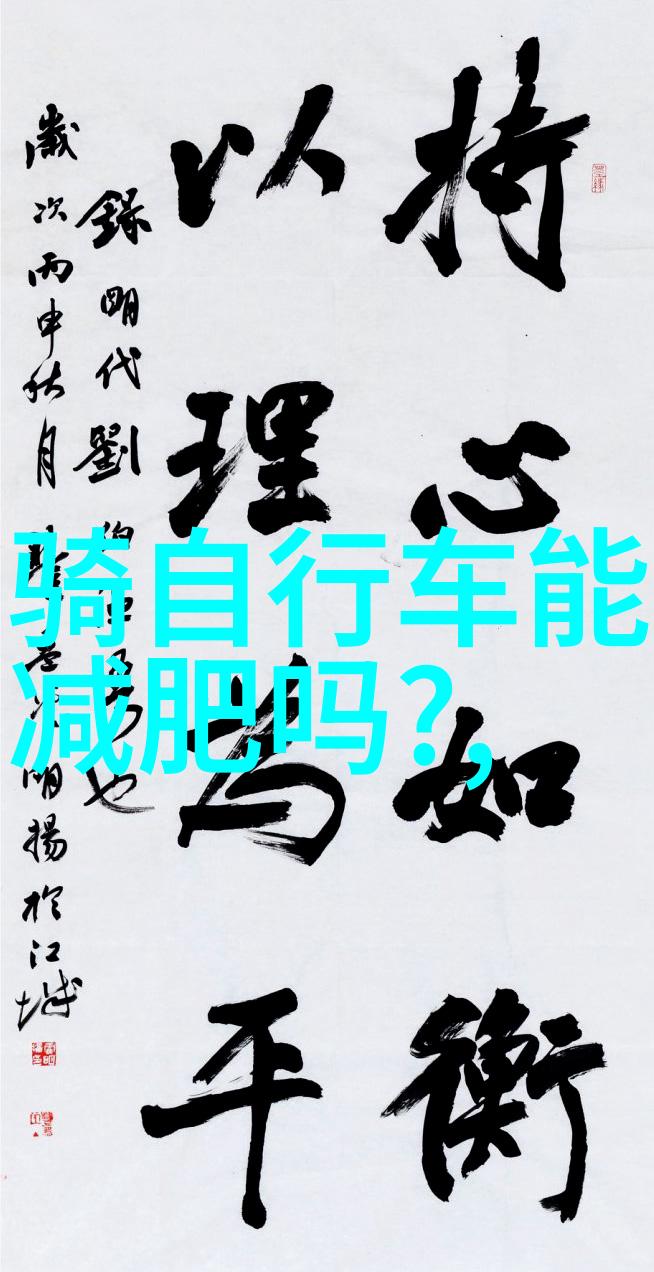 持心如衡
以理为平
錄明代劉伯温
也
歲次丙申秋月
明揚於江城
骑自行车能
减肥吗?,